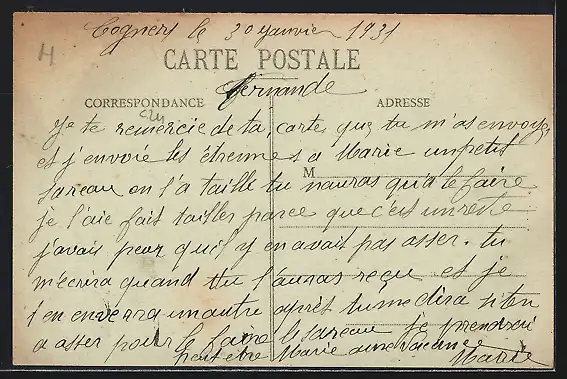 Cogners le 30 Janvier 1931
CARTE POSTALE
Fernande
CORRESPONDANCE
ADRESSE
Je te remercie de ta carte que tu m'as envoyez
et j'envoie les étrennes a Marie un petit
M
sareau on l'a taille tu nauras qu'a le faire
je l'aie fait tailler parce que c'est un reste
j'avais peur qu'il y en avait pas asser. tu
m'écrira quand tu l'auras reçu et je
t'en enverra un autre après tu me dira si ten
a asser pour le faire le sareau je prendrai
peut être Marie aux vacances
Marie